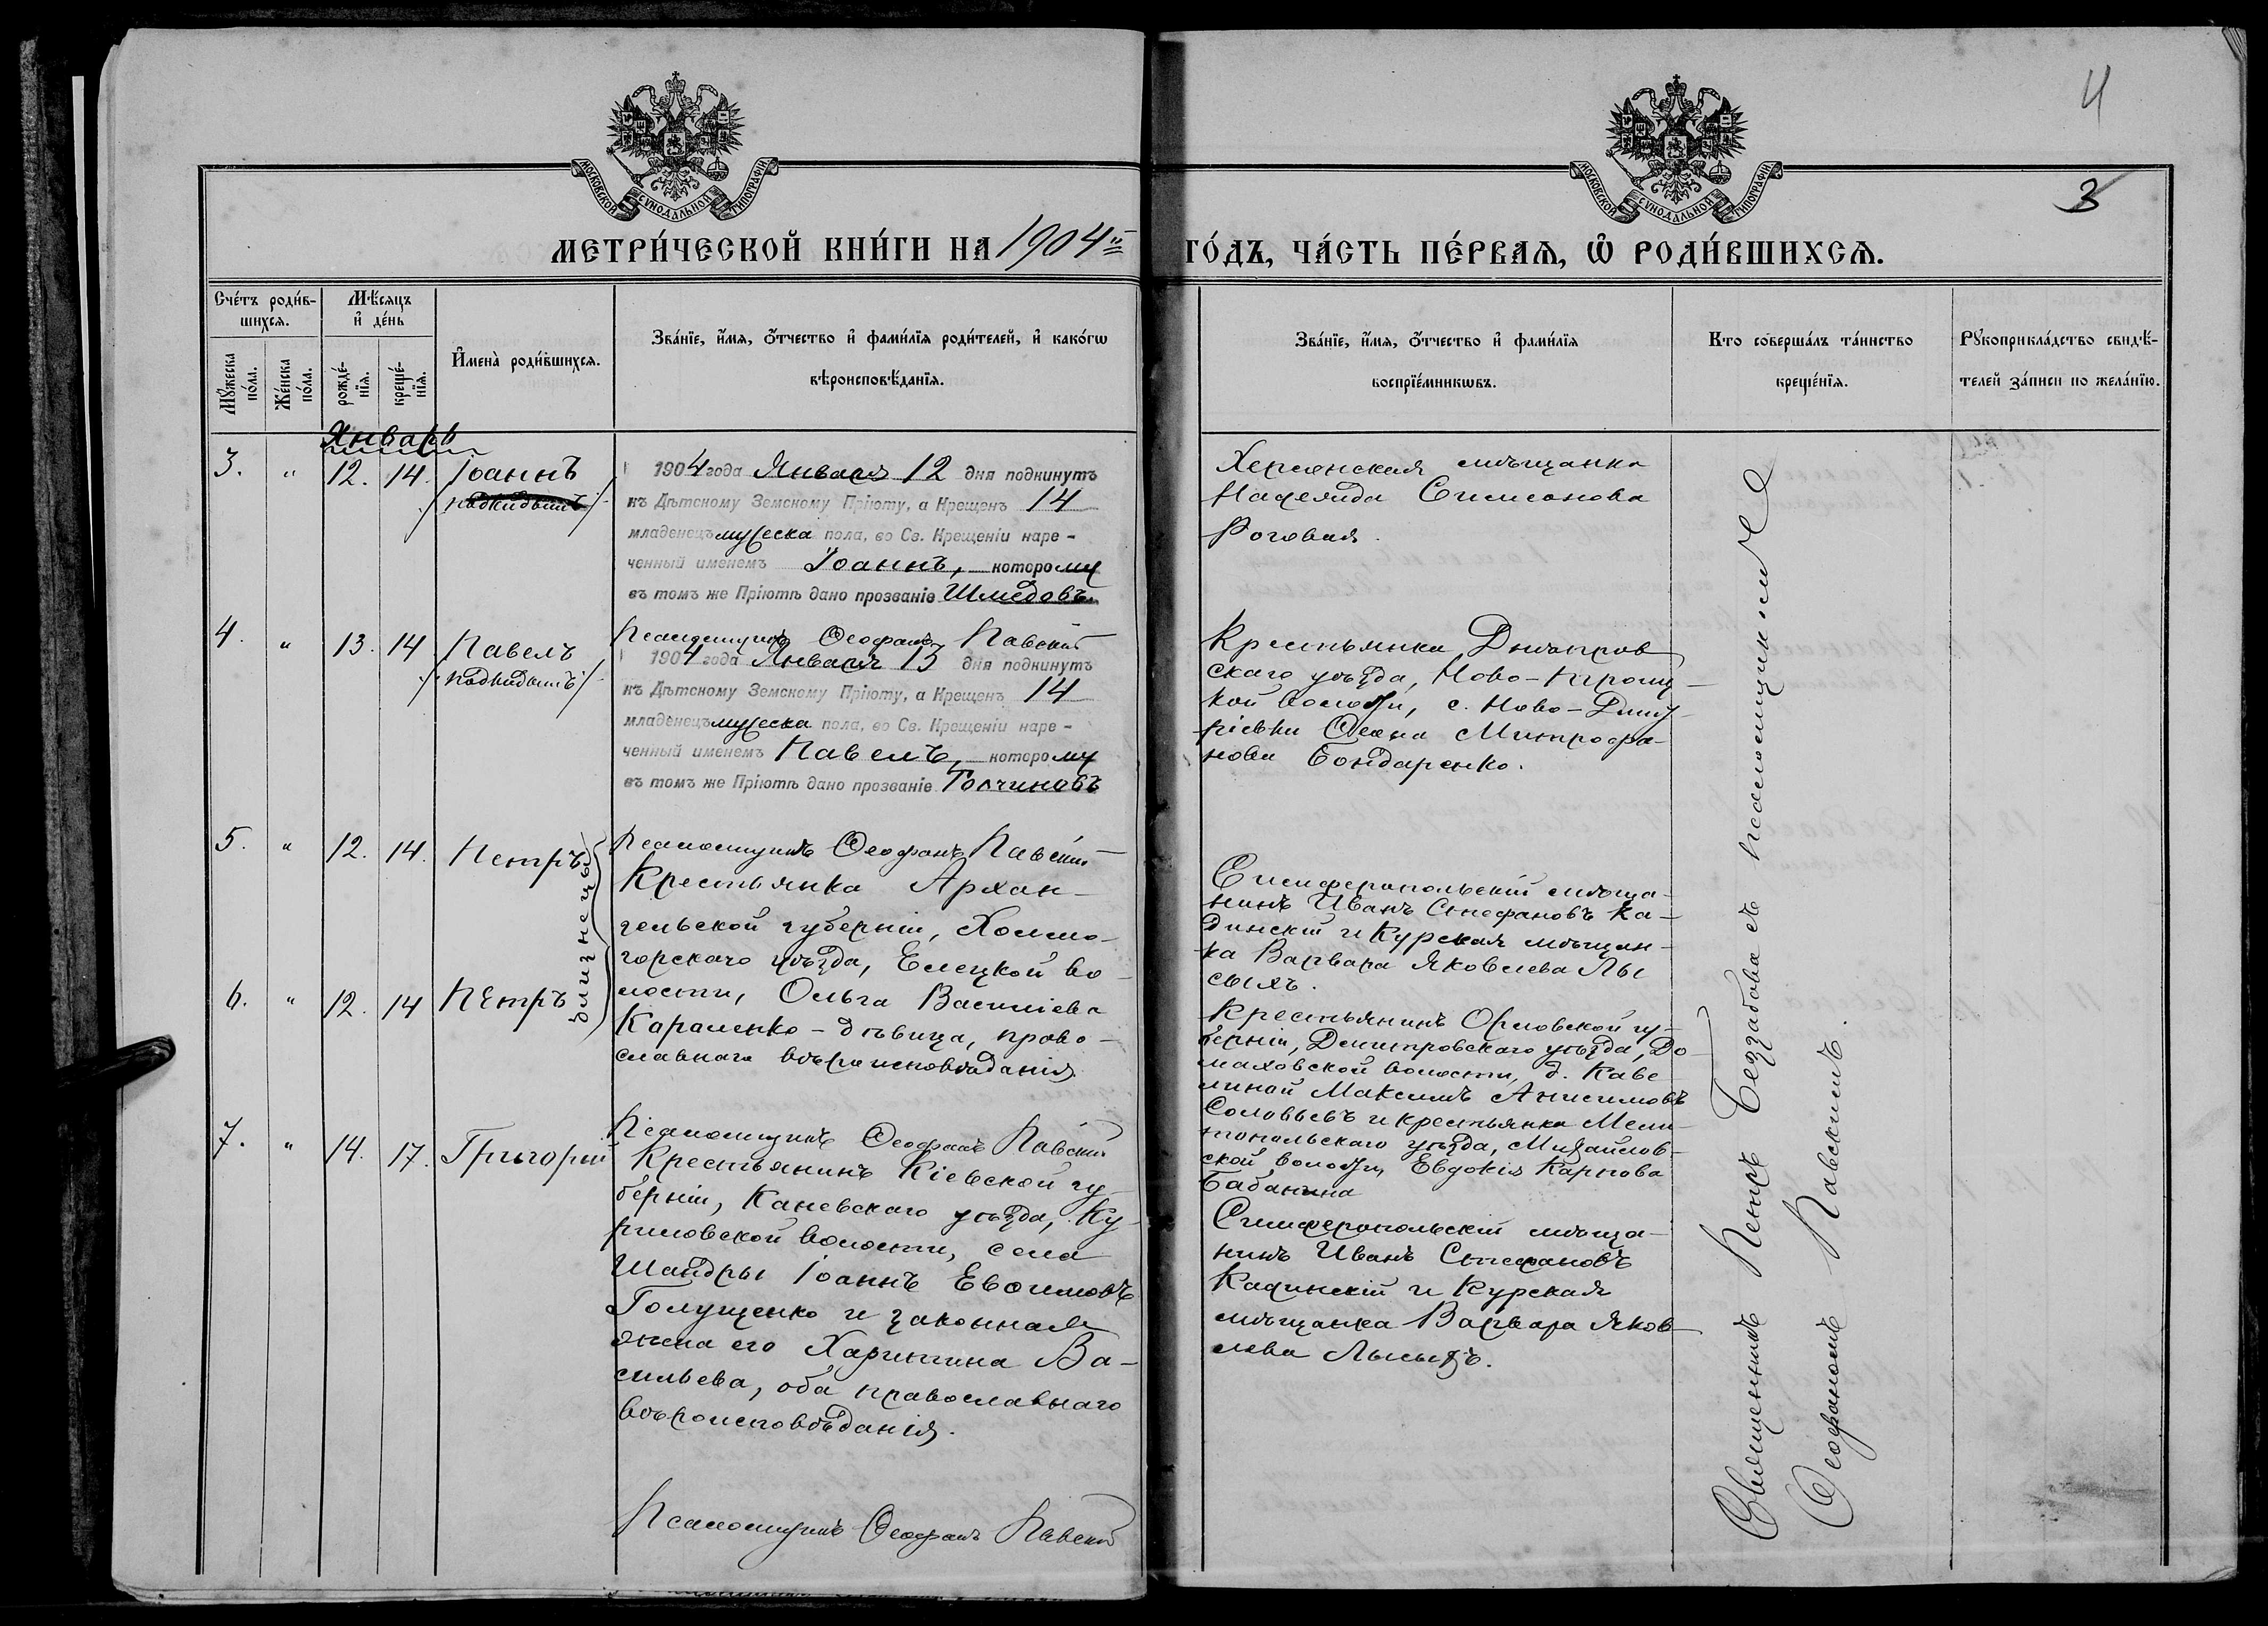 4
3
МОСКОВСКОЙ СѴНОДАЛЬНОЙ ТИПОГРАФІИ
МОСКОВСКОЙ СѴНОДАЛЬНОЙ ТИПОГРАФІИ
МЕТРИ́ЧЕСКОЙ КНИ́ГИ НА 1904й ГО́ДЪ, ЧА́СТЬ ПЕ́РВАѦ, Ѡ҆ РОДИ́ВШИХСѦ.
Сче́тъ роди́в-
шихсѧ.
Мꙋ́жеска по́ла.
Же́нска по́ла.
Мѣ́сѧцъ
и҆ де́нь
рожде́-
нїѧ.
креще́-
нїѧ.
И҆мена̀ роди́вшихсѧ.
Зва́нїе, и҆́мѧ, ѻ҆́тчество и҆ фами́лїѧ роди́телей, и҆ како́гѡ
вѣроисповѣ́данїѧ.
Зва́нїе, и҆́мѧ, ѻ҆́тчество и҆ фами́лїѧ
воспрїе́мникѡвъ.
Кто̀ соверша́лъ та́инство
креще́нїѧ.
Рꙋкоприкла́дство свидѣ́-
телей за́писи по жела́нїю.
Январь
3. " 12. 14. Іоаннъ
/подкидышъ/
1904 года Января 12 дня подкинутъ
къ Дѣтскому Земскому Пріюту, а Крещенъ 14
младенецъ мужеска пола, во Св. Крещеніи наре-
ченный именемъ Іоаннъ, которому
въ томъ же Пріютѣ дано прозваніе Шмедовъ.
Псаломщикъ Ѳеофанъ Павскій
Херсонская мѣщанка
Надежда Симонова
Роговая.
4. " 13. 14 Павелъ
/подкидышъ/
1904 года Января 13 дня подкинутъ
къ Дѣтскому Земскому Пріюту, а Крещенъ 14
младенецъ мужеска пола, во Св. Крещеніи наре-
ченный именемъ Павелъ, которому
въ томъ же Пріютѣ дано прозваніе Толчиновъ
Псаломщикъ Ѳеофанъ Павскій
Крестьянка Днѣпров
скаго уѣзда,
кой волости, с. Ново-Дми
Митрофа-
нова Бондаренко.
5. " 12. 14. Петръ
близнецы
6. " 12. 14 Петръ
Крестьянка Архан-
гельской губерніи, Холмо-
горскаго уѣзда, Емецкой во-
лости, Ольга Василіева
Караленко - дѣвица, право-
славнаго вѣроисповѣданія
Псаломщикъ Ѳеофанъ Павскій
Симферопольскій мѣща-
нинъ Иванъ Стефановъ Ка-
динскій и Курская мѣщан-
ка Варвара Яковлева Лы
сыхъ.
Крестьянинъ Орловской гу-
берніи, Дмитровскаго уѣзда, До-
маховской волости, д. Каве
линой Максимъ Анисимовъ
Соловьевъ и крестьянка Мели-
топольскаго уѣзда, Михайлов-
ской волости Евдокія Карпова
Бабанина
7. " 14. 17. Григорій
Крестьянинъ Кіевской гу-
берніи, Каневскаго уѣзда, Ку-
риловской волости, села
Шандры Іоаннъ Евѳимовъ
Голущенко и законная
жена его Харитина Ва-
сильева, оба православнаго
вѣроисповѣданія.
Псаломщикъ Ѳеофанъ Павскій
Симферопольскій мѣща-
нинъ Иванъ Стефановъ
Кадинскій и Курская
мѣщанка Варвара Яков-
лева Лысыхъ.
Священникъ Петръ Беззабава съ псаломщикомъ
Ѳеофаномъ Павскимъ.